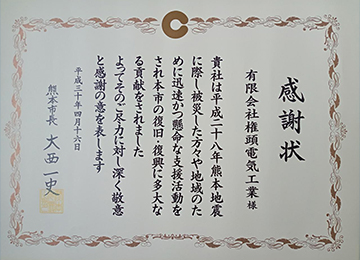 感謝状
有限会社権頭電気工業様
貴社は平成二十八年熊本地震
に際し被災した方々や地域のた
めに迅速かつ懸命な支援活動を
され本市の復旧・復興に多大な
る貢献をされました
よってそのご尽力に対し深く敬意
と感謝の意を表します
平成三十年四月十六日
熊本市長 大西一史